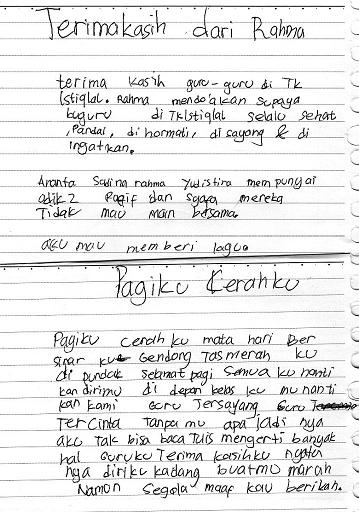 Terimakasih dari Rahma
terima kasih guru-guru di Tk
Istiqlal. Rahma mendo'akan supaya
buguru di TkIstiqlal selalu sehat
, pandai, di hormati, di sayang & di
ingatkan.
Ananta Savina rahma Yudistira mempunyai
adik2 Raqif dan syafa mereka
Tidak mau main bersama.
aku mau memberi lagu.
Pagiku Cerahku
Pagiku cerahku mata hari Ber
sinar ku Gendong Tas merah ku
di pundak selamat pagi semua ku nanti
kan dirimu di depan kelas ku mu nanti
kan kami Guru Tersayang Guru
TerCinta Tanpa mu apa jadi nya
aku Tak bisa baca Tulis mengerti banyak
hal Guruku Terima kasihku nyata
nya diriku kadang buatmu marah
Namon segala maaf kau berikan.